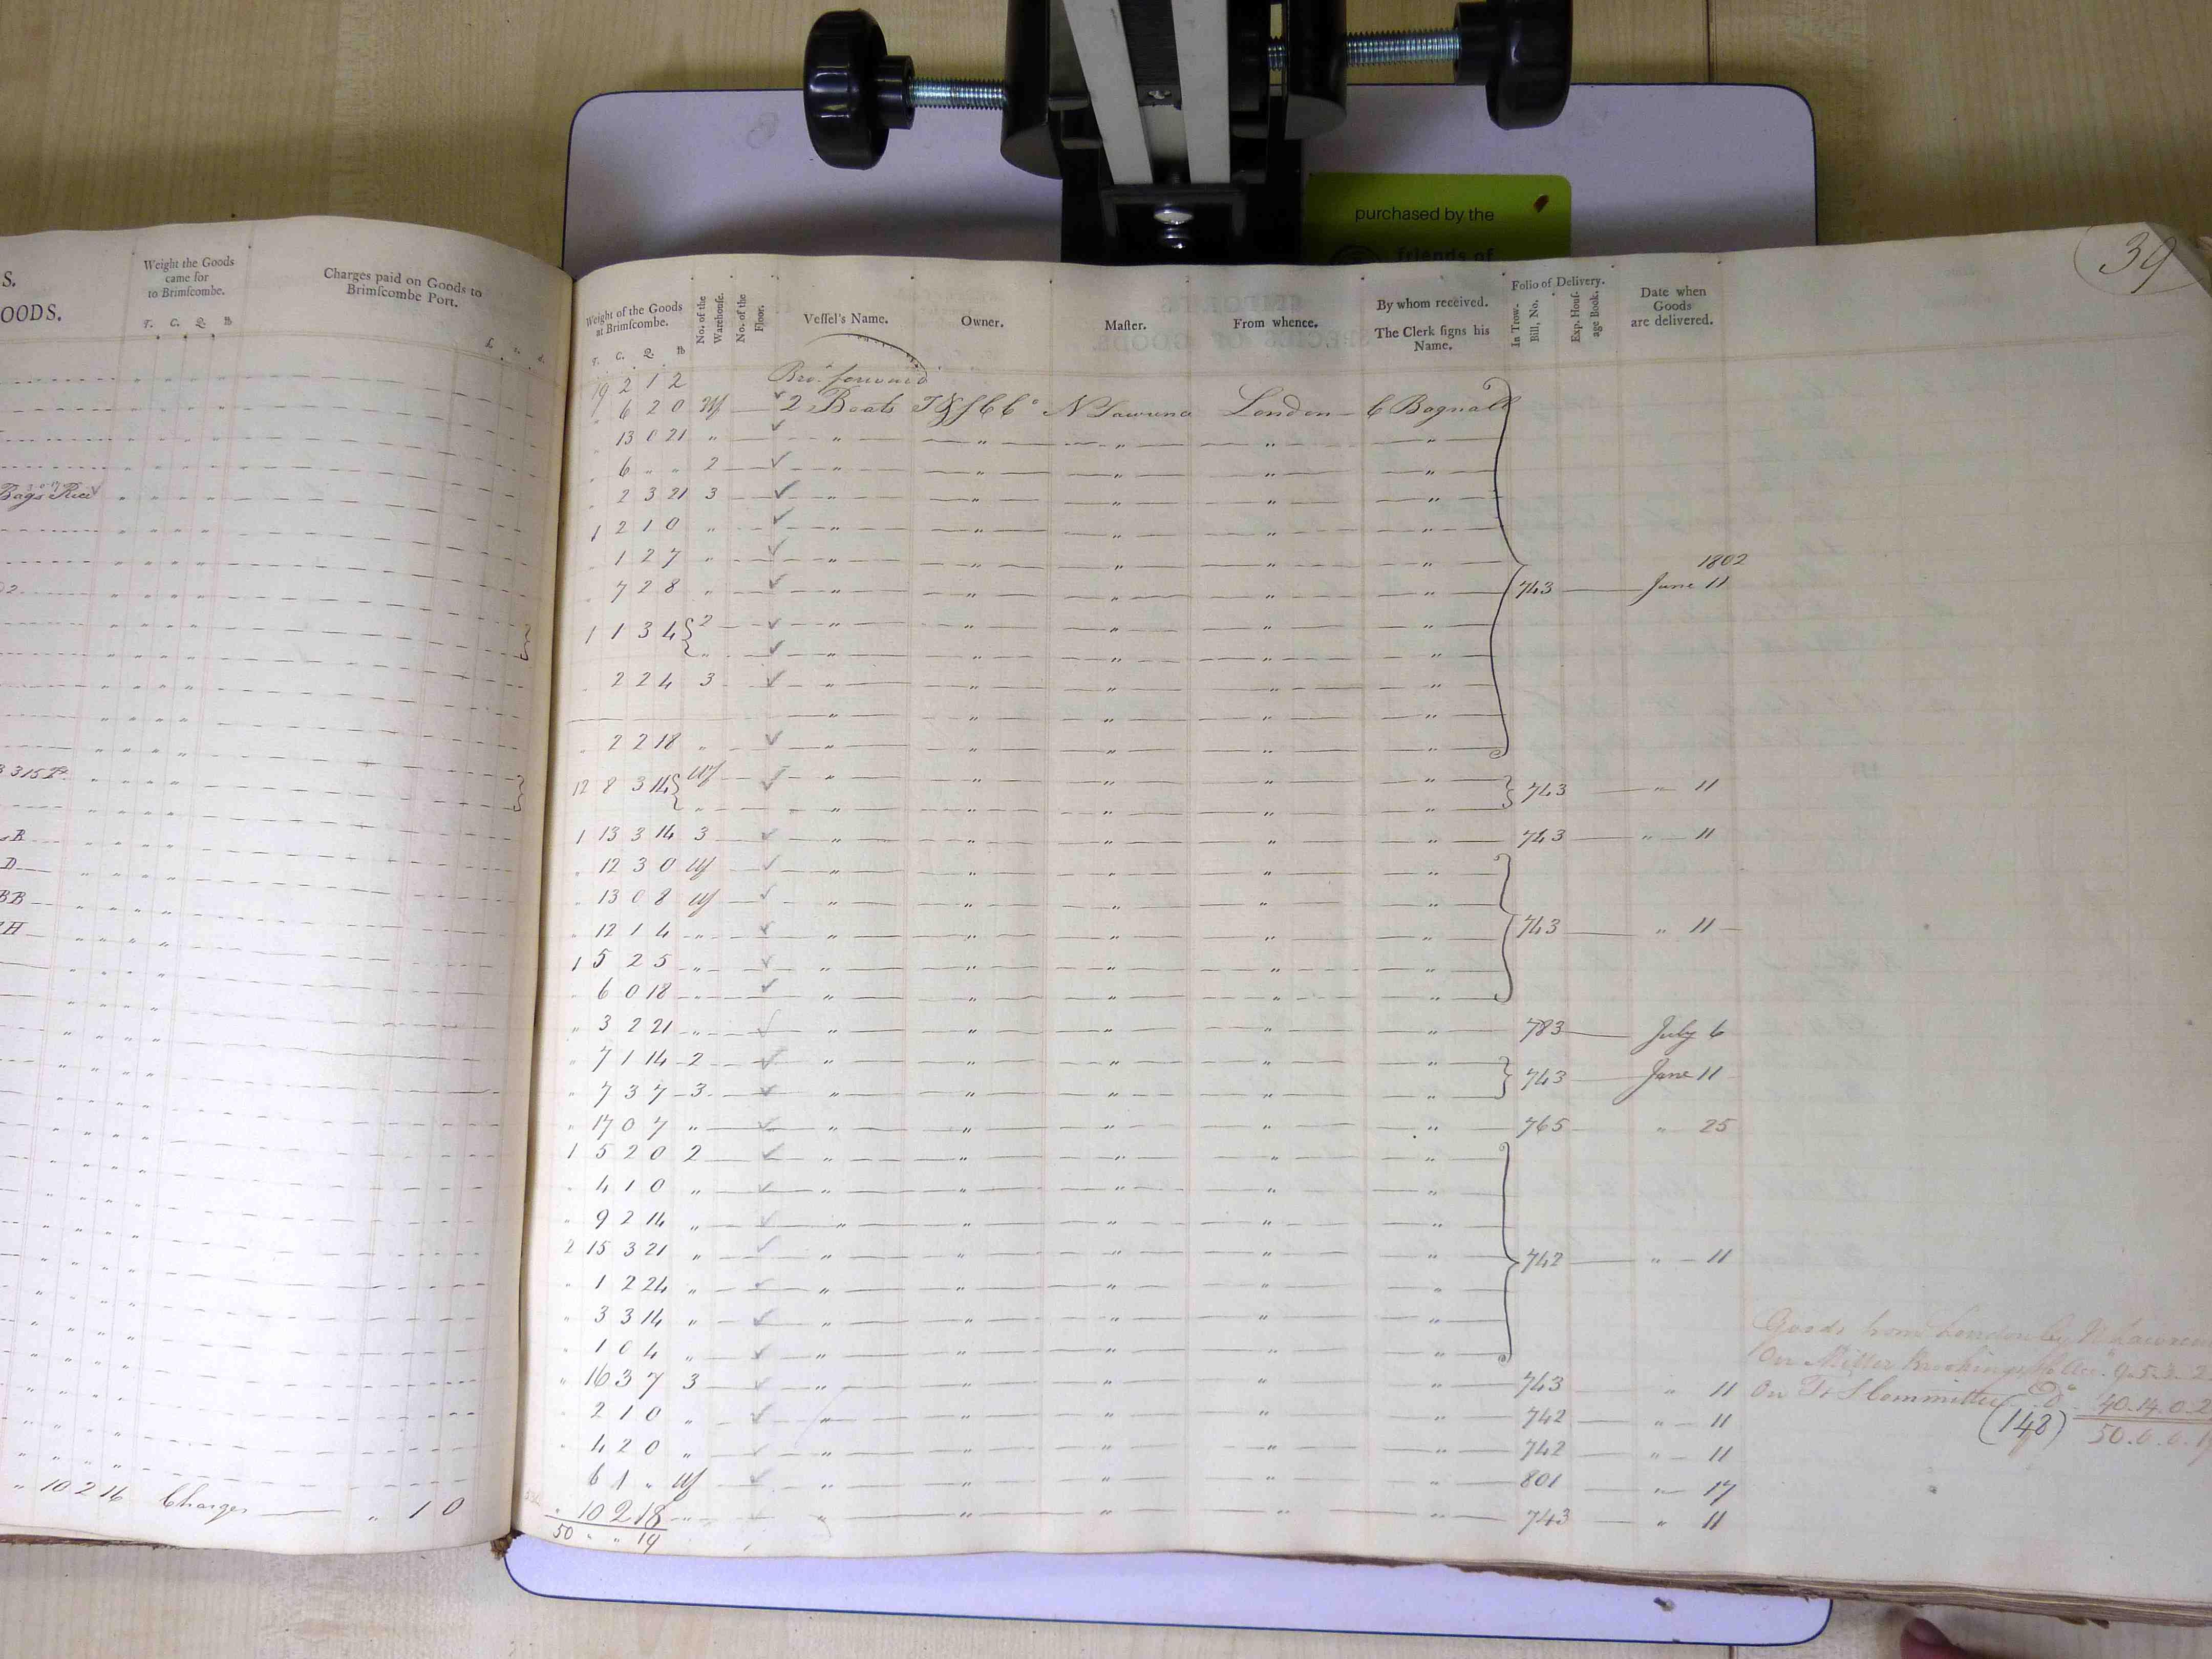 purchased by the
friends of
39
S.
OODS.
Weight the Goods
came for
to Brimſcombe.
T. C. Q. lb
Charges paid on Goods to
Brimſcombe Port.
£. s. d.
Bags Rice
3 315
sB
D
BB
H
" 10 2 16 Charges " 1 0
Weight of the Goods
at Brimſcombe.
T. C. Q. lb
No. of the
Warehouſe.
No. of the
Floor.
Veſſel's Name.
Owner.
Maſter.
From whence.
By whom received.
The Clerk ſigns his
Name.
Folio of Delivery.
In Trow-
Bill, No.
Exp. Houſ-
age Book.
Date when
Goods
are delivered.
19 2 1 2 Bro.t forward
" 6 2 0 Wf 2 Boats T&SCCo N Lawrence London C Bagnall
" 13 0 21 " " " " " "
" 6 " " 2 " " " " "
" 2 3 21 3 " " " " "
1 2 1 0 " " " " " "
" 1 2 7 " " " " " "
1802
" 7 2 8 " " " " " " 743 June 11
1 1 3 4 2 " " " " "
" " " " " "
" 2 2 4 3 " " " " "
" " " " "
" 2 2 18 " " " " " "
12 8 3 14 Wf " " " " " 743 " 11
" " " " " "
1 13 3 14 3 " " " " " 743 " 11
" 12 3 0 Wf " " " " "
" 13 0 8 Wf " " " " "
" 12 1 4 " " " " " " 743 " 11
1 5 2 5 " " " " " "
" 6 0 18 " " " " " "
" 3 2 21 " " " " " " 783 July 6
" 7 1 14 2 " " " " "
" 7 3 7 3 " " " " " 743 June 11
" 17 0 7 " " " " " " 765 " 25
1 5 2 0 2 " " " " "
" 4 1 0 " " " " " "
" 9 2 14 " " " " " "
2 15 3 21 " " " " " " 742 " 11
" 1 2 24 " " " " " "
" 3 3 14 " " " " " "
" 1 0 4 " " " " " "
" 16 3 7 3 " " " " " 743 " 11
" 2 1 0 " " " " " " 742 " 11
" 4 2 0 " " " " " " 742 " 11
" 6 1 " Wf " " " " " 801 " 17
" 10 2 18 " " " " " 743 " 11
50 " " 19
Goods from London by N Lawrence
On
On T & S Committee Do 40.14.0.2
(148) 50.0.0.19